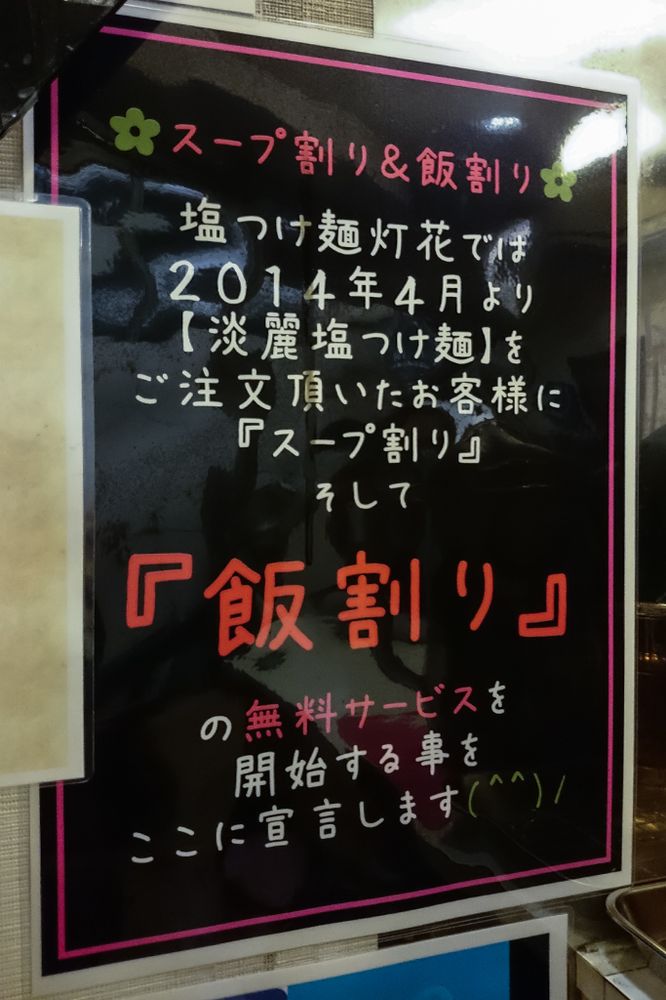 スープ割り&飯割り
塩つけ麺灯花では
2014年4月より
【淡麗塩つけ麺】を
ご注文頂いたお客様に
『スープ割り』
そして
『飯割り』
の無料サービスを
開始する事を
ここに宣言します(^^)/